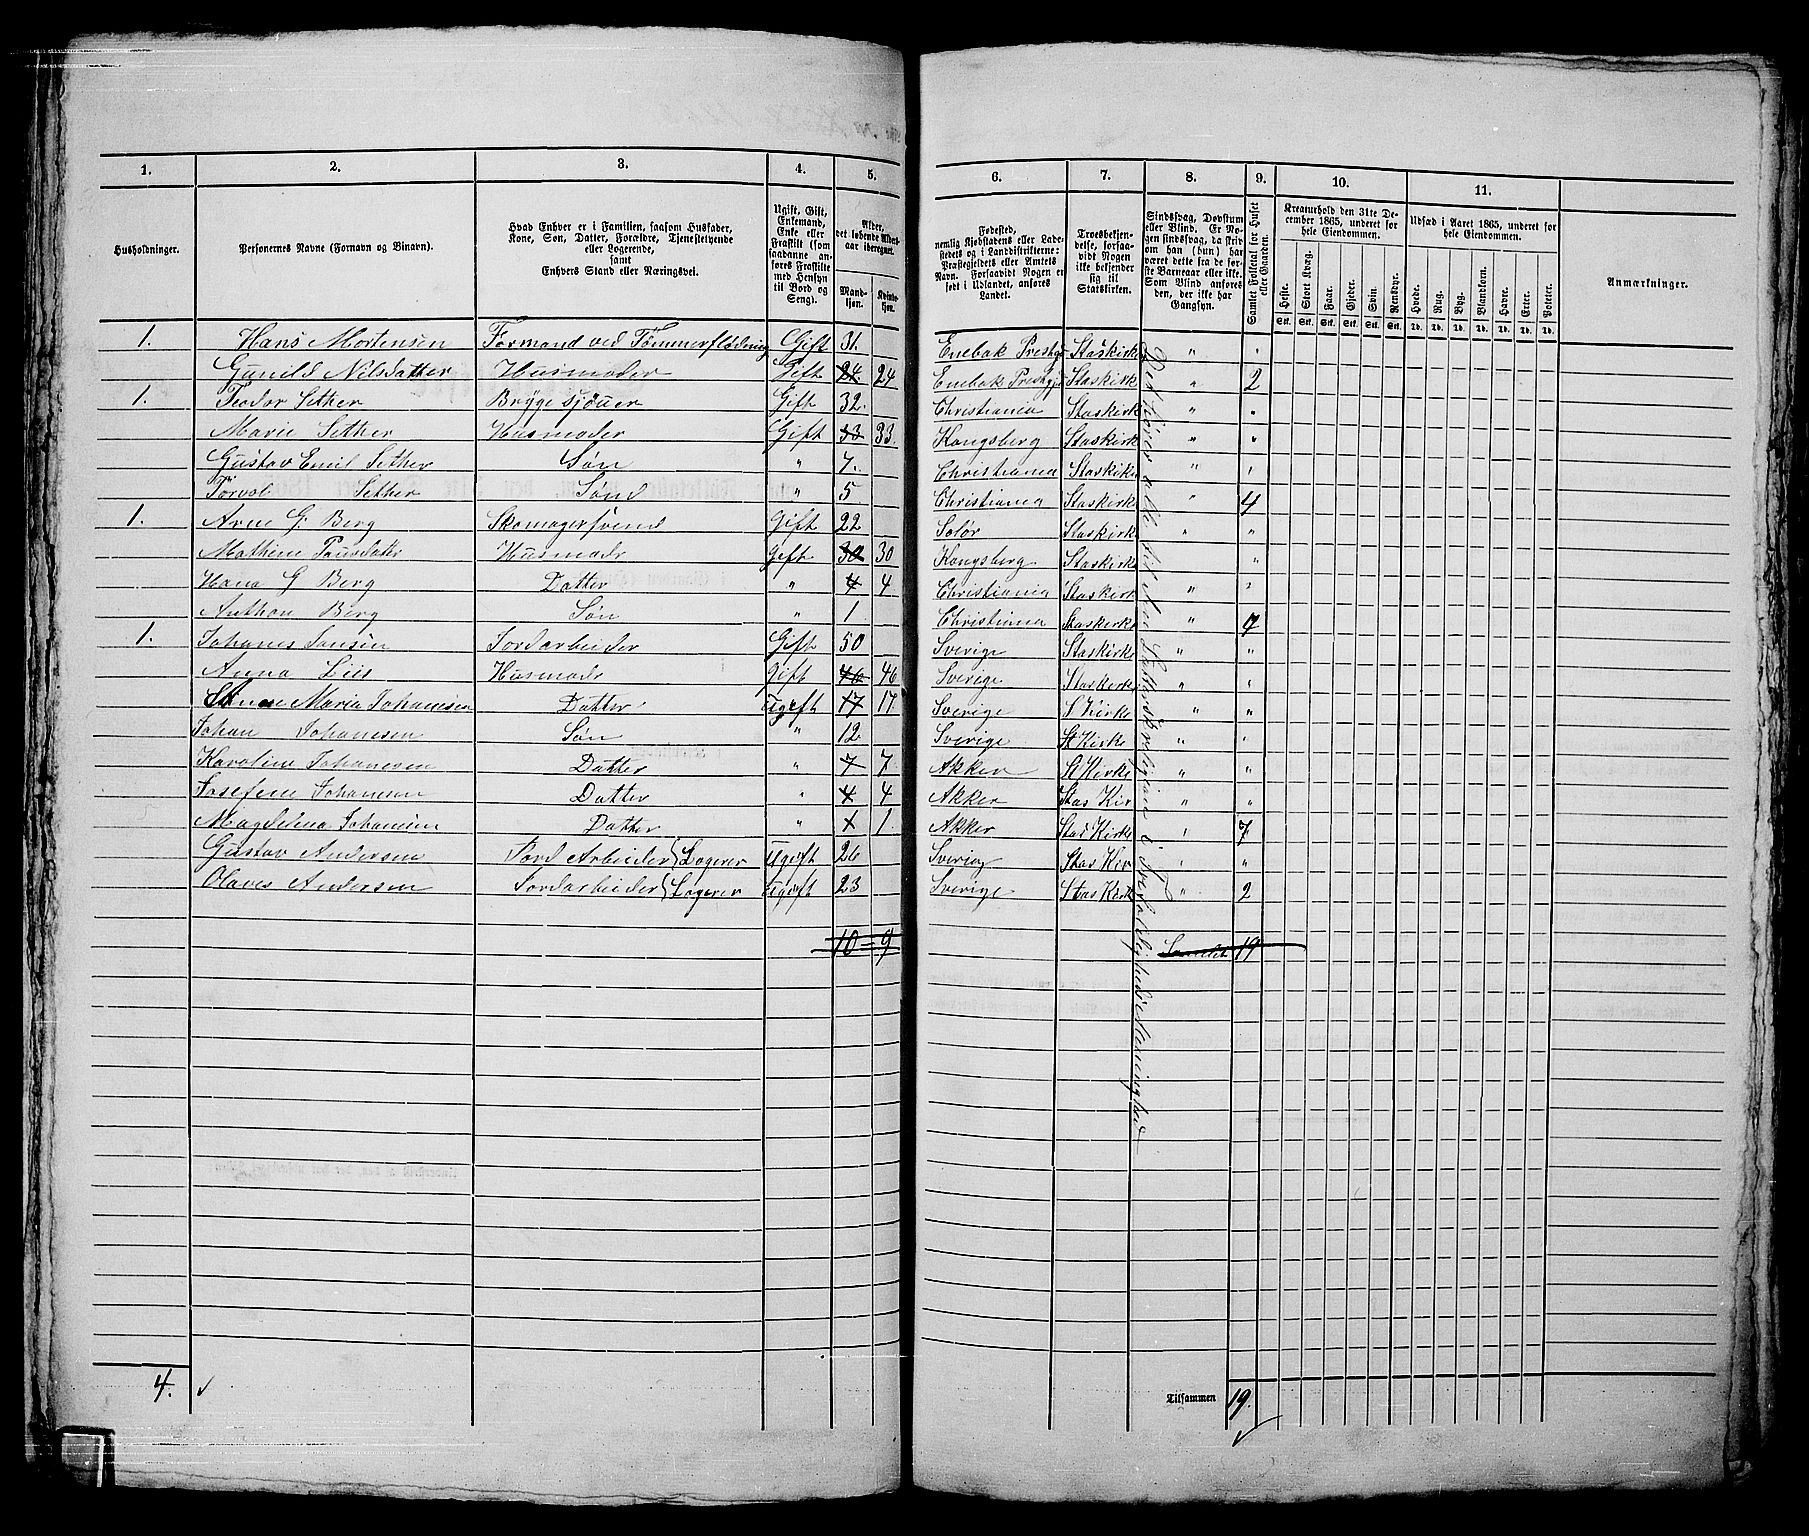 1. 2. 3. 4. 5. 6. 7. 8. 9. 10. 11.
Husholdninger.
Personernes Navne (Fornavn og Binavn).
Hvad Enhver er i Familien, saasom Husfader,
Kone, Søn, Datter, Forældre, Tjenestetyende
eller Logerende,
samt
Enhvers Stand eller Næringsvei.
Ugift, Gift,
Enkemand,
Enke eller
Fraskilt (som
saadanne an-
føres Fraskilte
med Hensyn
til Bord og
Seng).
Alder,
det løbende Alders-
aar iberegnet.
Mand-
kjøn.
Kvinde-
kjøn.
Fødested,
nemlig Kjøbstadens eller Lade-
stedets og i Landdistrikterne:
Præstegjeldets eller Amtets
Navn. Forsaavidt Nogen er
født i Udlandet, anføres
Landet.
Troesbekjen-
delse, forsaa-
vidt Nogen
ikke bekjender
sig til
Statskirken.
Sindssvag, Døvstum
eller Blind. Er No-
gen sindssvag, da skriv
om han (hun) har
været dette fra de før-
ste Barneaar eller ikke.
Som Blind anføres
den, der ikke har
Gangsyn.
Samlet Folketal for Huset
eller Gaarden.
Kreaturhold den 31te De-
cember 1865, underet for
hele Eiendommen.
Heste. Stort Kvæg. Faar. Gjeder. Svin. Rensdyr.
Stk. Stk. Stk. Stk. Stk. Stk.
Udsæd i Aaret 1865, underet for
hele Eiendommen.
Hvede. Rug. Byg. Blandkorn. Havre. Erter. Poteter.
Td. Td. Td. Td. Td. Td. Td.
Anmærkninger.
1. Hans Mortensen Formand ved Tømmerflødning Gift 31. Enebak Prestgj Staskirke " "
Gunild Nilsdatter Husmoder Gift 24 24 Enebak Prestgj Staskirk " 2
1. Teodor Sether Brygesjouer Gift 32. Christiania Staskirk " "
Marie Sether Husmoder Gift 33 33. Kongsberg Staskirk " "
Gustav Emil Sether Søn " 7. Christiania Staskirke " "
Torvol Sether Sønd " 5 Christiania Staskirke " 4
1. Arne G. Berg Skomagersvend Gift 22 Solør Staskirke " "
Mathine Pausdater Husmodr Gift 30 30 Kongsberg Staskirke "
Hana G Berg Datter " 4 4 Christiania Staskirk " "
Anthon Berg Søn " 1 Christiania Staskirke " 4
1. Johanes Jansen Jordarbeider Gift 50 Sverige Staskirke " "
Anna Liis Husmodr Gift 46 46 Sverige Staskirke " "
Maria Johanesen Datter Ugeft 17 17 Sverige S Kirke " "
Johan Johanesen Søn " 12 Sverige St Kirke " "
Karoline Johanesen Datter " 7 7 Akker St Kirke " "
Josefine Johansen Datter " 4 4 Akker Stas Kir " "
Magdelena Johansen Datter " 1 1. Akker Stas Kirke " 7
Gustav Andersen Jord Arbeider Logerer Ugeft 26 Sverig Stas Kir " "
Olaves Andersen Jordarbeider Logerer Ugeft 23 Sverige Stas Kirk " 2
10 = 9 Samlet 19
4. Tilsammen 19.